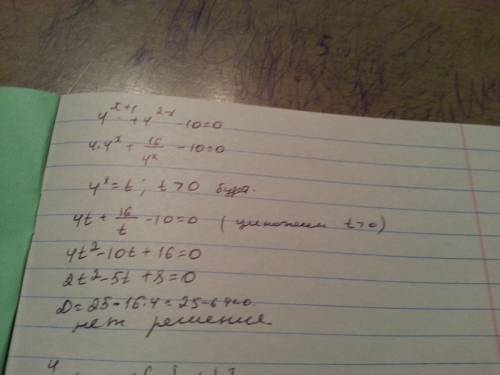 4^{x+1} + 4^{2-x} - 10 = 0
4·4^x + \frac{16}{4^x} - 10 = 0
4^x = t; t > 0
4t + \frac{16}{t} - 10 = 0 (умножаем t>0)
4t^2 - 10t + 16 = 0
2t^2 - 5t + 8 = 0
D = 25 - 16·4 = 25 - 64 < 0
нет решения.